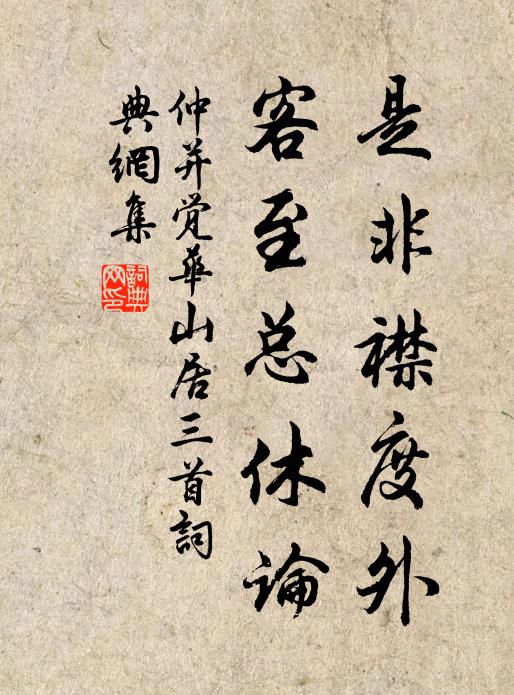 是非襟度外
客至总休论
仲并觉華山居三首詞
典網集
詞典
网印